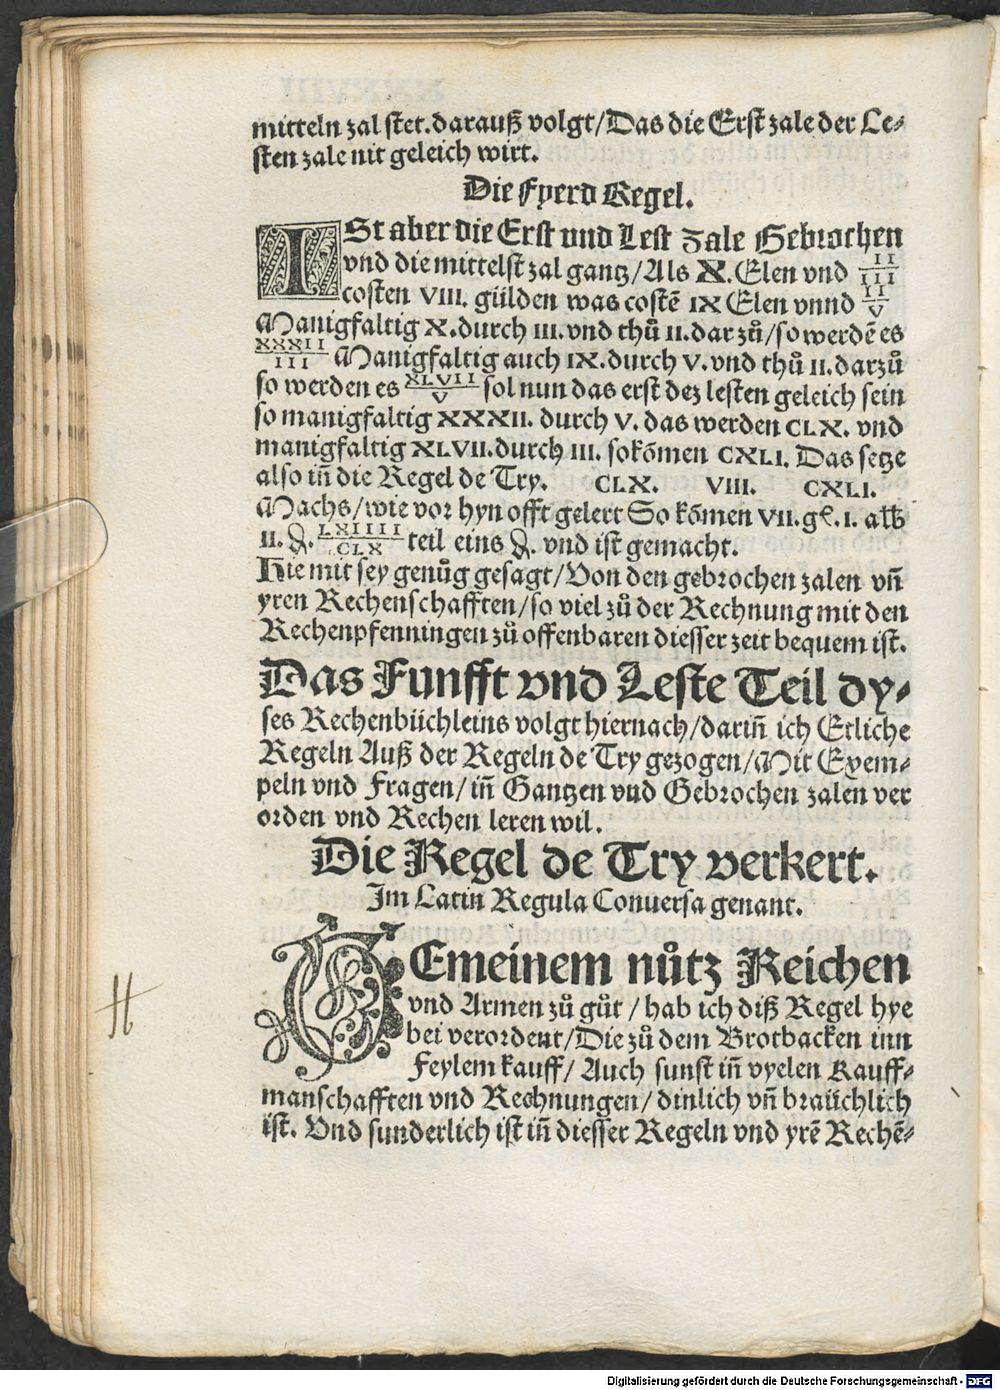 mitteln zal stet. darauß volgt/Das die Erst zale der Le⸗
sten zale nit geleich wirt.
Die Fyerd Regel.
ISt aber die Erst vnd Lest Zale Gebrochen
vnd die mittelst zal gantz/Als X. Elen vnd II/III
costen VIII. gülden was costē IX Elen vnnd II/V
Manigfaltig X. durch III. vnd thů II. dar zů/so werdē es
XXXII/III Manigfaltig auch IX. durch V. vnd thů II. darzů
so werden es XLVII/V sol nun das erst dez lesten geleich sein
so manigfaltig XXXII. durch V. das werden CLX. vnd
manigfaltig XLVII. durch III. so kōmen CXLI. Das setze
also in̄ die Regel de Try. CLX. VIII. CXLI.
Machs/wie vor hyn offt gelert So kōmen VII. gl. I. alb
II. ₰. LXIIII/CLX teil eins ₰. vnd ist gemacht.
Hie mit sey genůg gesagt/Von den gebrochen zalen vn̄
yren Rechenschafften/so viel zů der Rechnung mit den
Rechenpfenningen zů offenbaren diesser zeit bequem ist.
Das Funfft vnd Leste Teil dy⸗
ses Rechenbüchleins volgt hiernach/darin̄ ich Etliche
Regeln Auß der Regeln de Try gezogen/Mit Exem⸗
peln vnd Fragen/in̄ Gantzen vnd Gebrochen zalen ver
orden vnd Rechen leren wil.
Die Regel de Try verkert.
Im Latin Regula Conuersa genant.
GEmeinem nůtz Reichen
vnd Armen zů gůt/hab ich diß Regel hye
bei verordent/Die zů dem Brotbacken inn
Feylem kauff/Auch sunst in̄ vyelen Kauff⸗
manschafften vnd Rechnungen/dinlich vn̄ braüchlich
ist. Vnd sunderlich ist in̄ diesser Regeln vnd yrē Rechē⸗
Digitalisierung gefördert durch die Deutsche Forschungsgemeinschaft - DFG